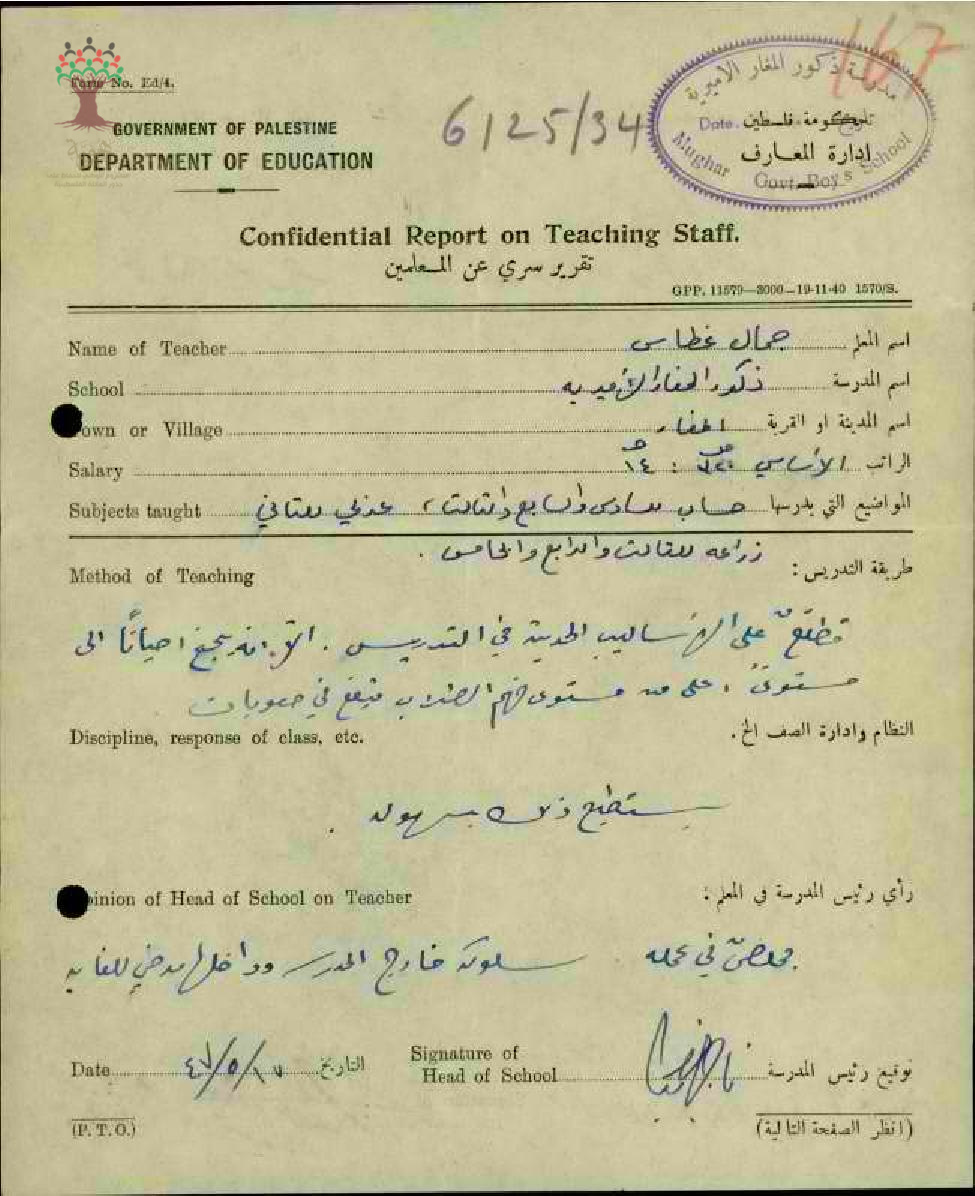 167
Form No. Ed/4.
GOVERNMENT OF PALESTINE
DEPARTMENT OF EDUCATION
6/25/34
مدرسة ذكور المغار الاميرية
Date تاريخ
حكومة فلسطين
إدارة المعارف
Mughar Govt. Boys School
Confidential Report on Teaching Staff.
تقرير سري عن المعلمين
GPP. 11579—3000—19-11-40 1570/S.
Name of Teacher جمال غطاس اسم المعلم
School ذكور المغار الأميريه اسم المدرسة
Town or Village المغار اسم المدينة او القرية
Salary الأساسي : ١٤ الراتب
Subjects taught حساب للسادس والسابع والثالث، للثاني المواضيع التي يدرسها
زراعه للثالث والرابع والخامس .
Method of Teaching طريقة التدريس :
مطلعٌ على الأساليب الحديثة في التدريس . انه احياناً الى
مستوىً اعلى من مستوى فهم الطلاب فيقع في صعوبات
Discipline, response of class, etc. النظام وادارة الصف الخ .
يستطيع ذلك بسهوله .
Opinion of Head of School on Teacher رأي رئيس المدرسة في المعلم :
مخلصٌ في عمله . سلوكه خارج المدرسه وداخلها مرضي للغايه
Date ٤٧/٥/١٧ التاريخ Signature of Head of School توقيع رئيس المدرسة
(P. T. O.) (انظر الصفحة التالية)